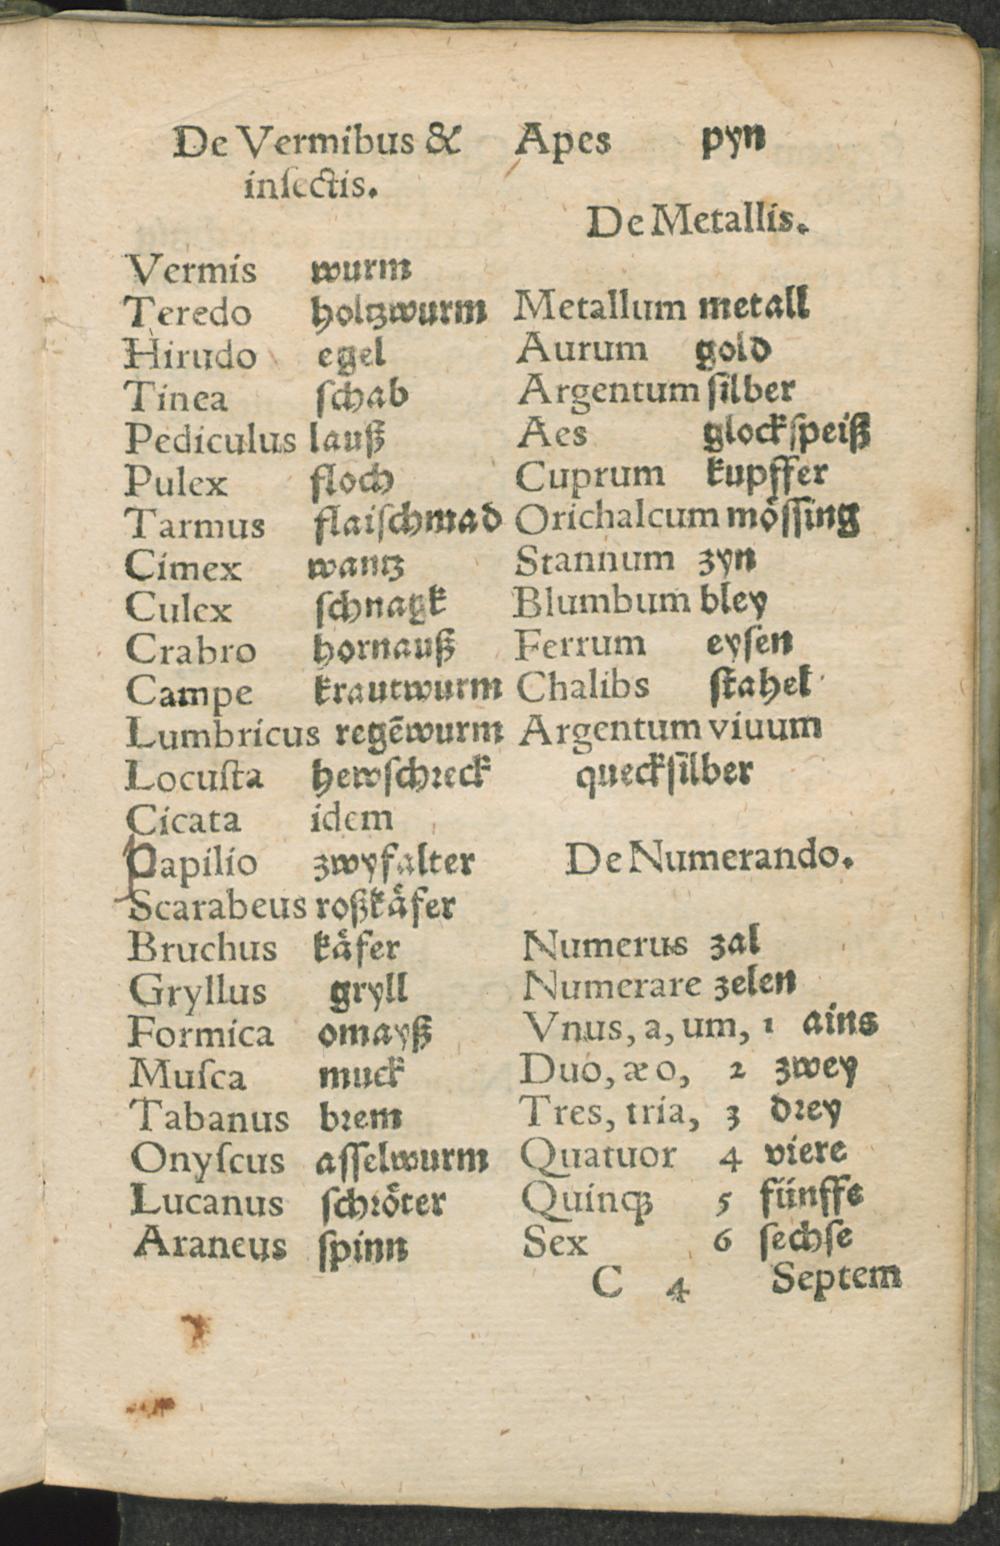 De Vermibus &
insectis.
Vermis wurm
Teredo holtzwurm
Hirudo egel
Tinea schab
Pediculus lauß
Pulex floch
Tarmus flaischmad
Cimex wantz
Culex schnagk
Crabro hornauß
Campe krautwurm
Lumbricus regēwurm
Locusta hewschreck
Cicata idem
Papilio zwyfalter
Scarabeus roßkåfer
Bruchus kåfer
Gryllus gryll
Formica omayß
Musca muck
Tabanus brem
Onyscus asselwurm
Lucanus schröter
Araneus spinn
Apes pyn
De Metallis.
Metallum metall
Aurum gold
Argentum silber
Aes glockspeiß
Cuprum kupffer
Orichalcum mössing
Stannum zyn
Blumbum bley
Ferrum eysen
Chalibs stahel
Argentum viuum
quecksilber
De Numerando.
Numerus zal
Numerare zelen
Vnus, a, um, 1 ains
Duo, æ o, 2 zwey
Tres, tria, 3 drey
Quatuor 4 viere
Quinqꝫ 5 fünffe
Sex 6 sechse
C 4 Septem